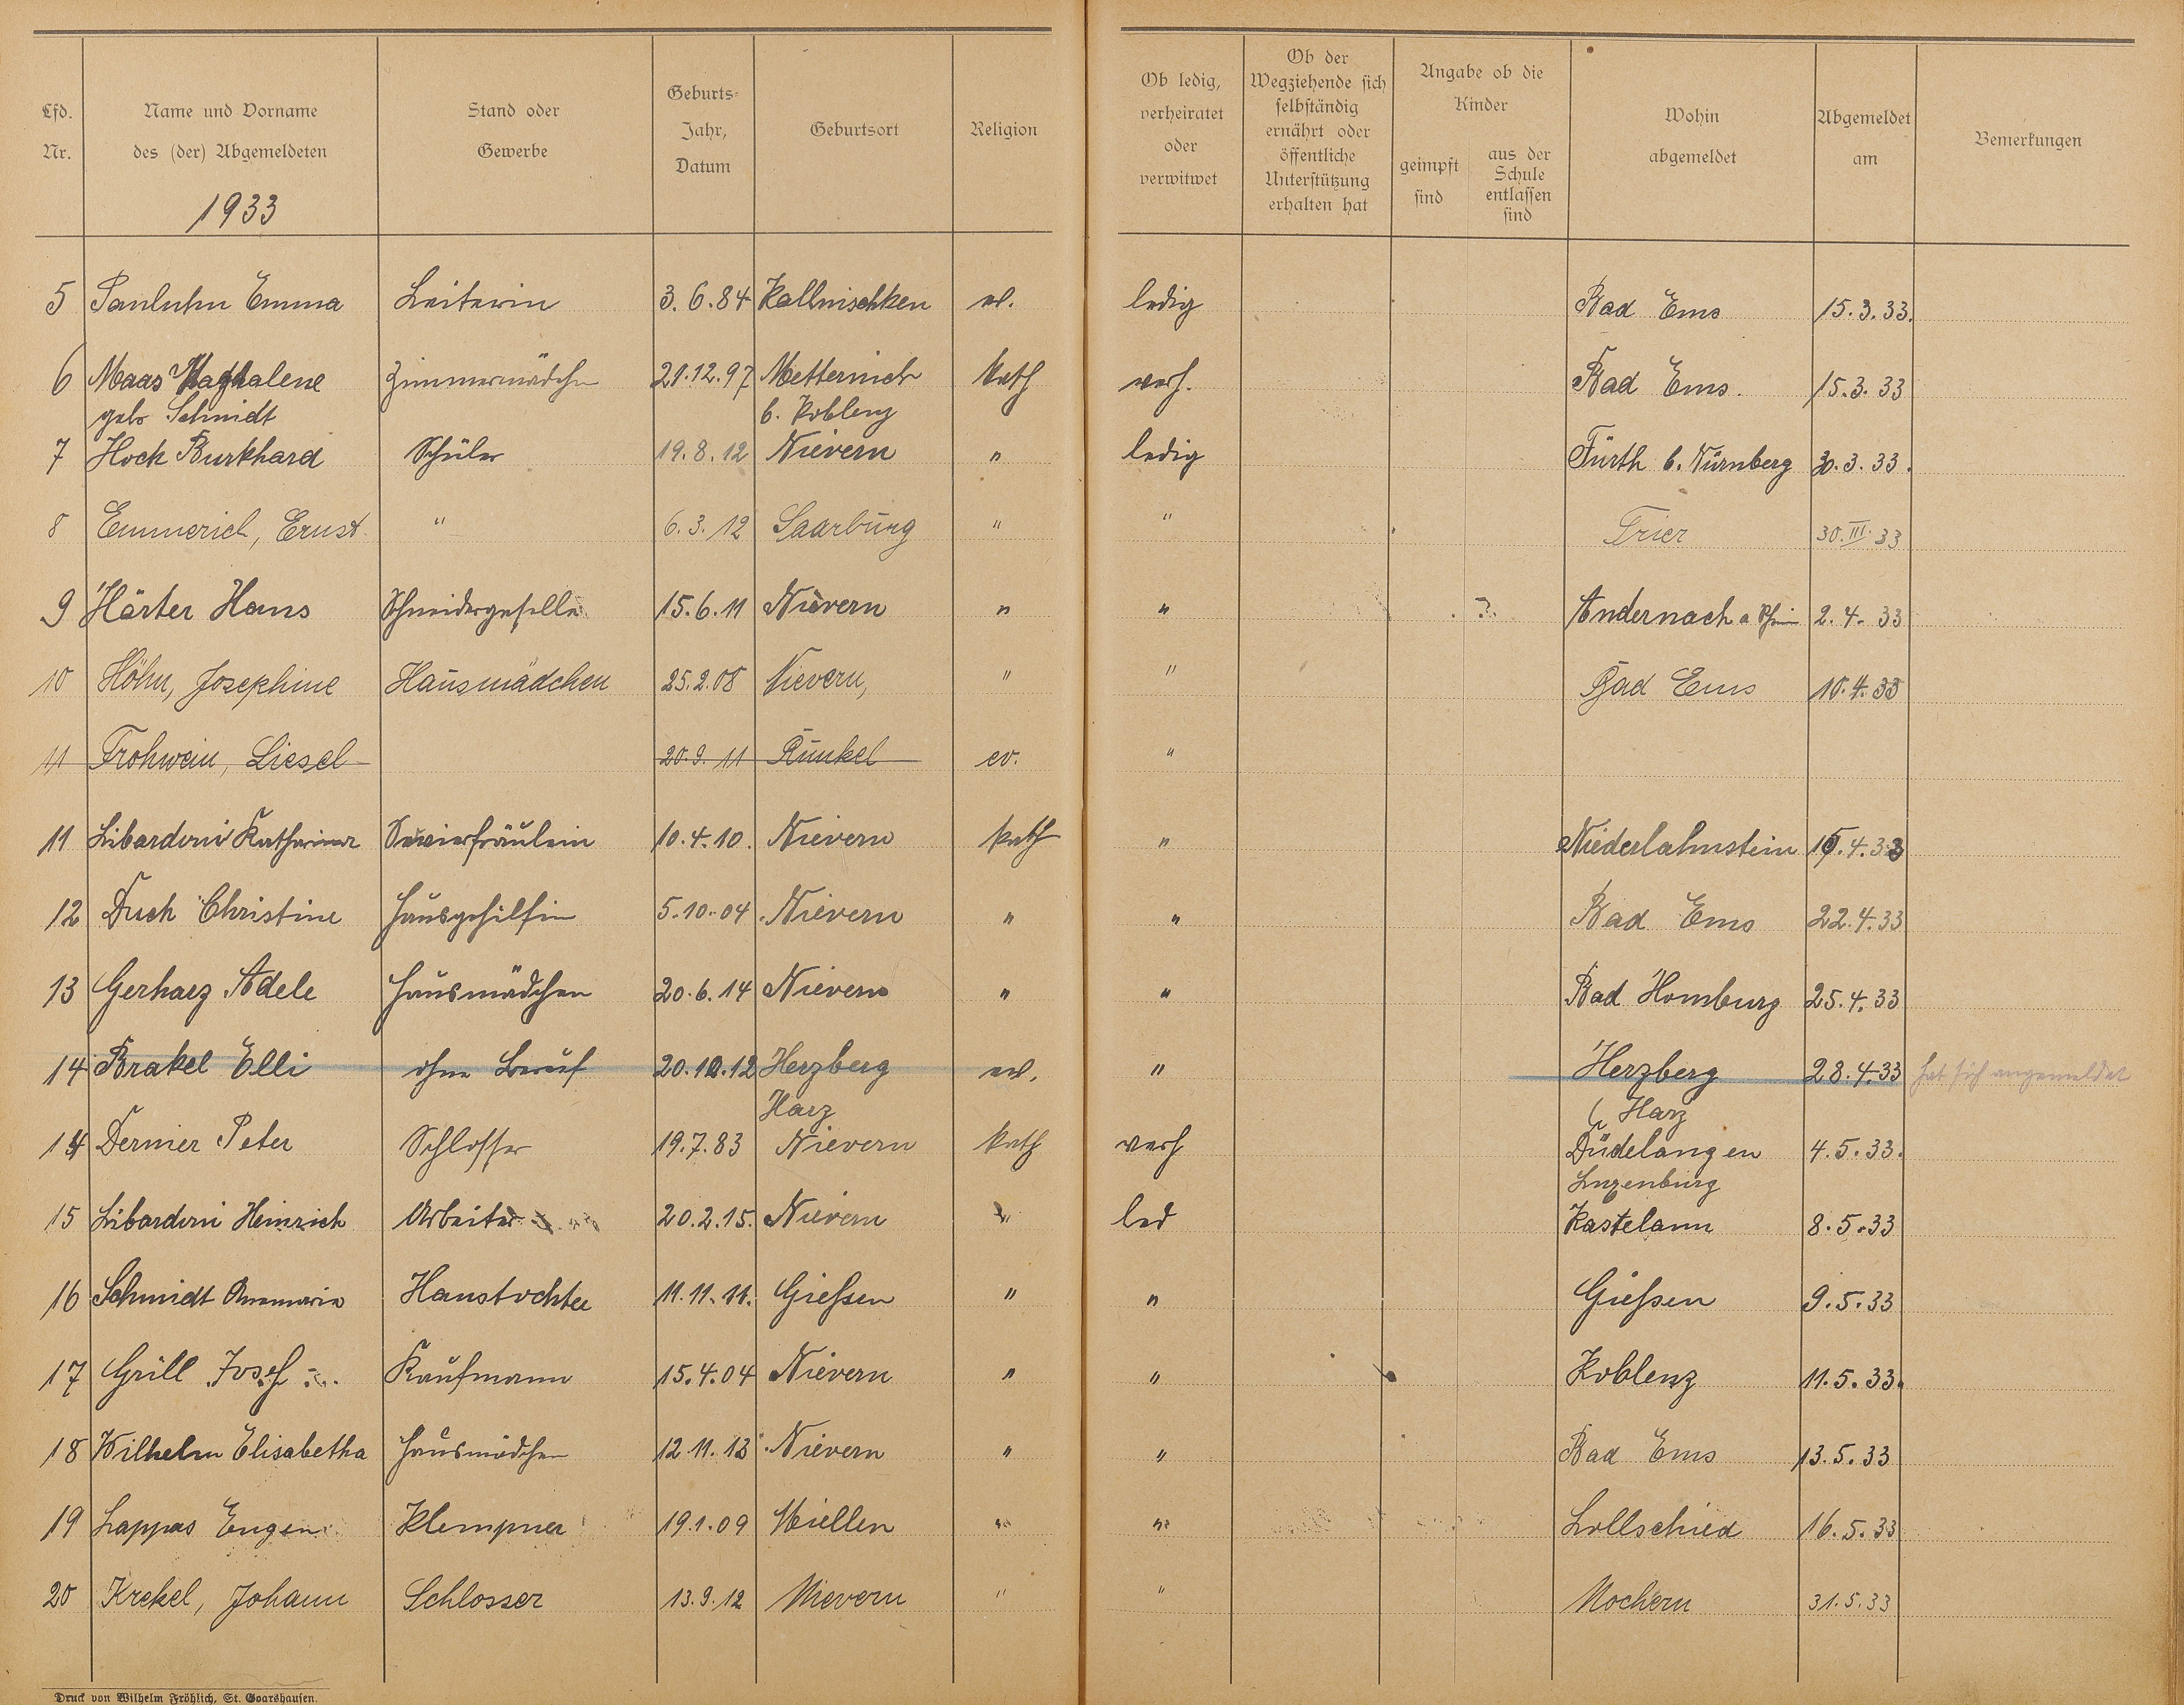 Lfd. Nr.
Name und Vorname des (der) Abgemeldeten
Stand oder Gewerbe
Geburts-Jahr, Datum
Geburtsort
Religion
Ob ledig, verheiratet oder verwitwet
Ob der Wegziehende sich selbständig ernährt oder öffentliche Unterstützung erhalten hat
Angabe ob die Kinder
geimpft sind
aus der Schule entlassen sind
Wohin abgemeldet
Abgemeldet am
Bemerkungen
1933
5 Pauluhn Emma Leiterin 3.6.84 Kallnischken ev. ledig Bad Ems 15.3.33.
6 Maas Magdalene Zimmermädchen 21.12.97 Metternich kath verh. Bad Ems. 15.3.33
geb. Schmidt b. Koblenz
7 Hock Burkhard Schüler 19.8.12 Nievern " ledig Fürth b. Nürnberg 30.3.33.
8 Emmerich, Ernst " 6.3.12 Saarburg " " Trier 30.III.33
9 Härter Hans Schneidergeselle 15.6.11 Nievern " " Andernach a Rhein 2.4.33
10 Höhn, Josephine Hausmädchen 25.2.08 Nievern, " " Bad Ems 10.4.33
11 Frohwein, Liesel 20.9.11 Runkel ev. "
11 Libardoni Katharina Servierfräulein 10.4.10. Nievern kath " Niederlahnstein 4.33
12 Duch Christine Hausgehilfin 5.10.04 Nievern " " Bad Ems 22.4.33
13 Gerharz Adele Hausmädchen 20.6.14 Nievern " " Bad Homburg 25.4.33
14 Brakel Elli ohne Beruf 20.10.12 Herzberg ev. " Herzberg 28.4.33 hat sich angemeldet
Harz ( Harz
14 Dernier Peter Schlosser 19.7.83 Nievern kath verh Düdelangen 4.5.33.
Luxenburg
15 Libardoni Heinrich Arbeiter 20.2.15. Nievern " led Kastelaun 8.5.33
16 Schmidt Annemarie Haustochter 11.11.11. Gießen " " Gießen 9.5.33
17 Grill Josef Kaufmann 15.4.04 Nievern " " Koblenz 11.5.33.
18 Wilhelm Elisabetha Hausmädchen 12.11.13 Nievern " " Bad Ems 13.5.33
19 Lappas Eugen Klempner 19.1.09 Miellen " " Lollschied 16.5.33
20 Krekel, Johann Schlosser 13.9.12 Nievern " " Mochern 31.5.33
Druck von Wilhelm Fröhlich, St. Goarshausen.